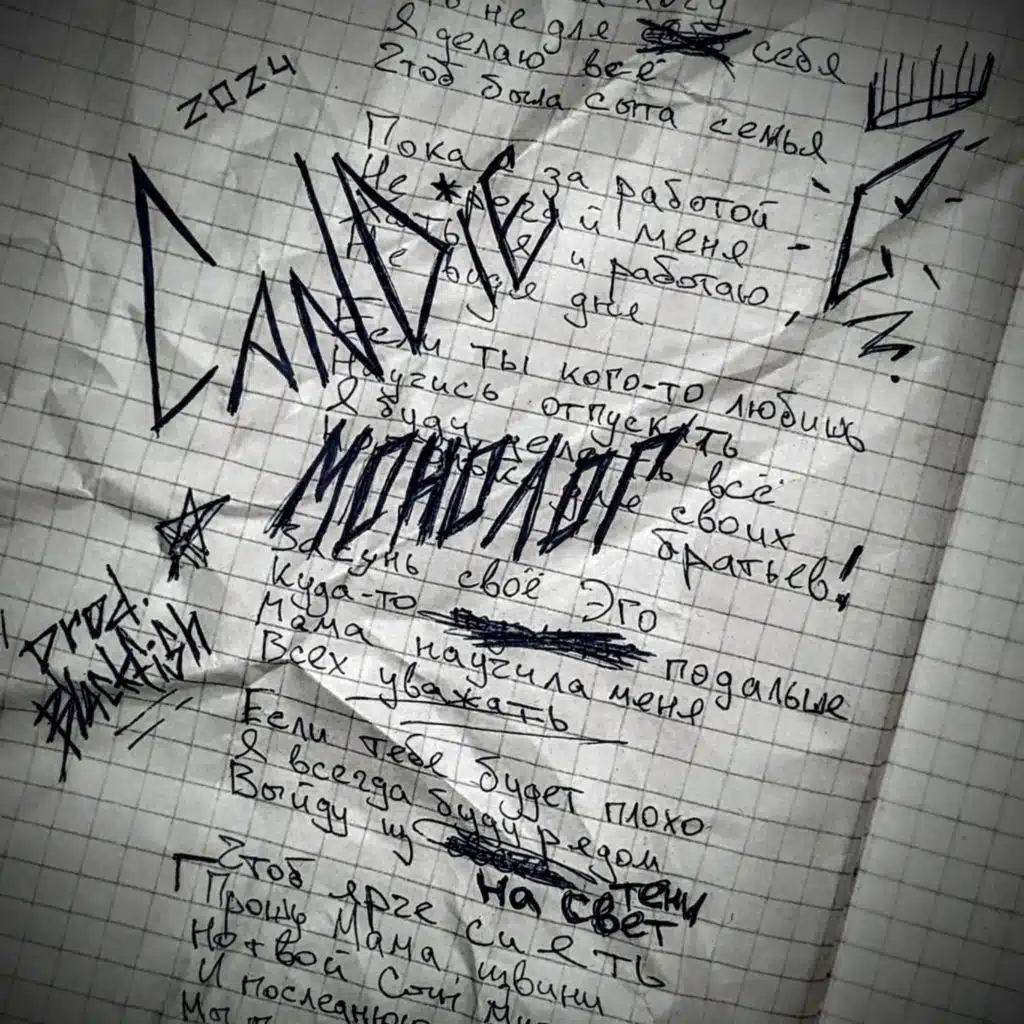 не для себя
Я делаю всё
Чтоб была сыта семья
2024
Пока за работой
Не й меня
CANDIE
и работаю
Не дне
Если ты кого-то любишь
Научись отпускать
Я буду делать всё
своих
братьев!
МОНОЛОГ
Засунь своё Эго
Куда-то подальше
Мама научила меня
Всех уважать
prod.
Blackfish
Если тебе будет плохо
Я всегда буду рядом
Выйду из тени
на свет
Чтоб ярче сиять
Прошу Мама, извини
Но твой Сын
И последнюю